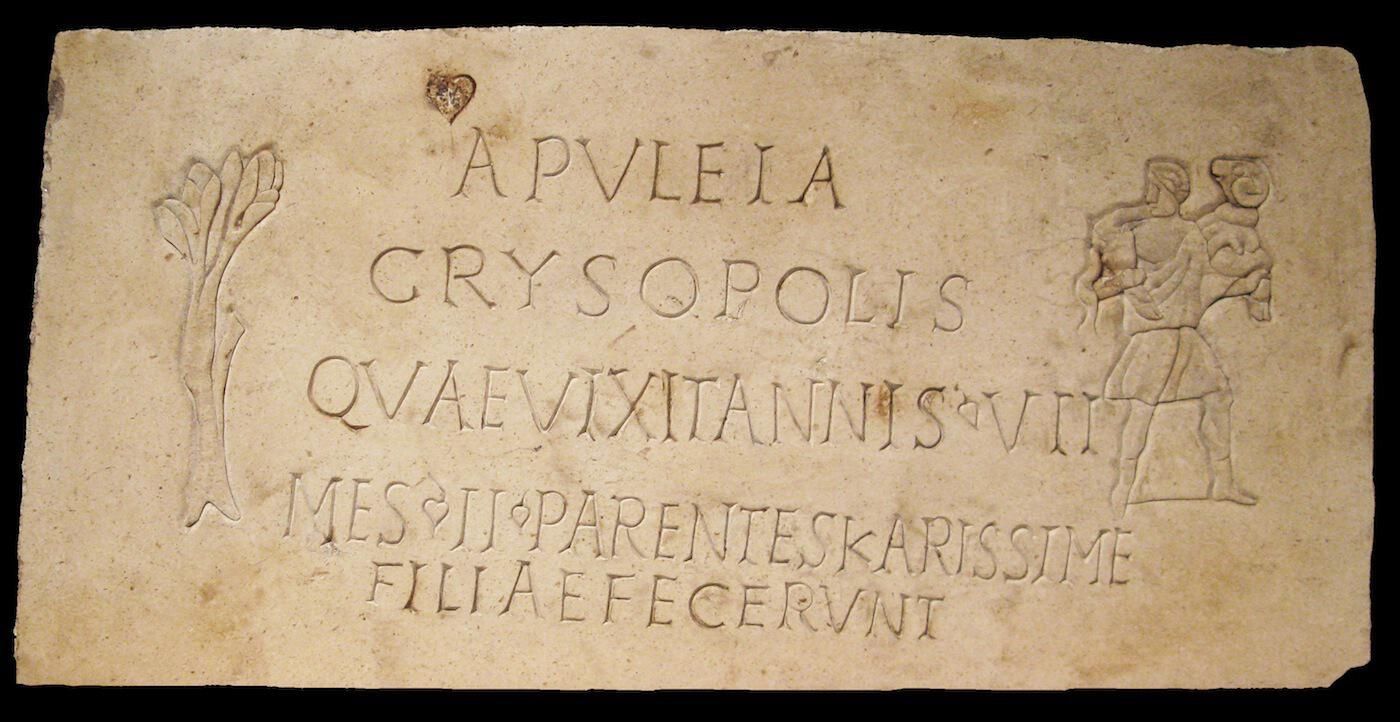 APVLEIA
CRYSOPOLIS
QVAEVIXITANNIS❦VII
MES❦II❦PARENTESKARISSIME
FILIAEFECERVNT